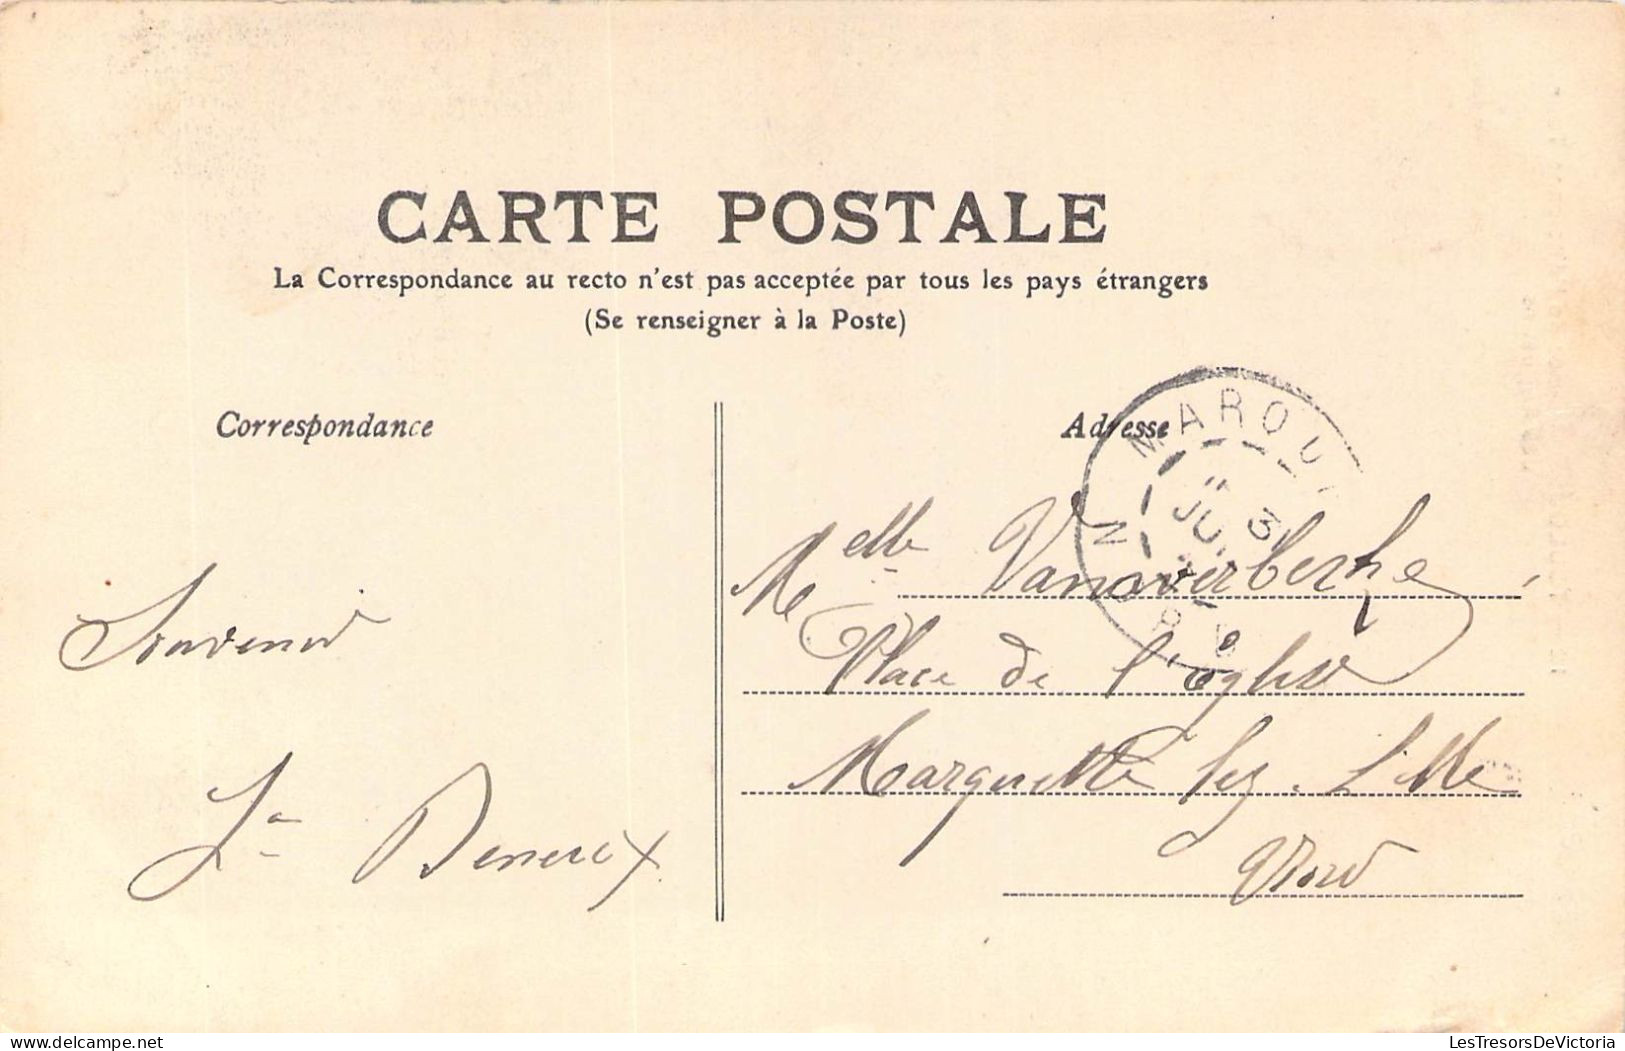 CARTE POSTALE
La Correspondance au recto n'est pas acceptée par tous les pays étrangers
(Se renseigner à la Poste)
Correspondance
Souvenir
Adresse
MARQU
3
NORD
Melle Vanoverberke
Place de l'église
Marquette lez Lille
Nord
delcampe.net
LesTresorsDeVictoria